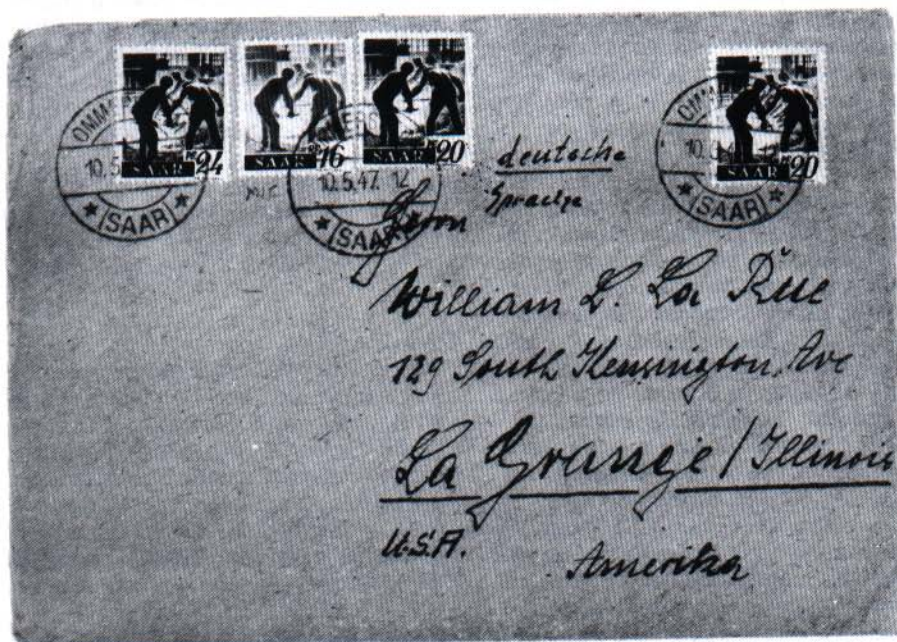 SAAR 24
SAAR 16
SAAR 20
SAAR 20
OMM
10.5
SAAR
10.5.47. 12
SAAR
10.5
SAAR
deutsche
Sprache
Herrn
William L. La Rue
129 South Kensington, Ave
La Grange / Illinois
U.S.A.
Amerika